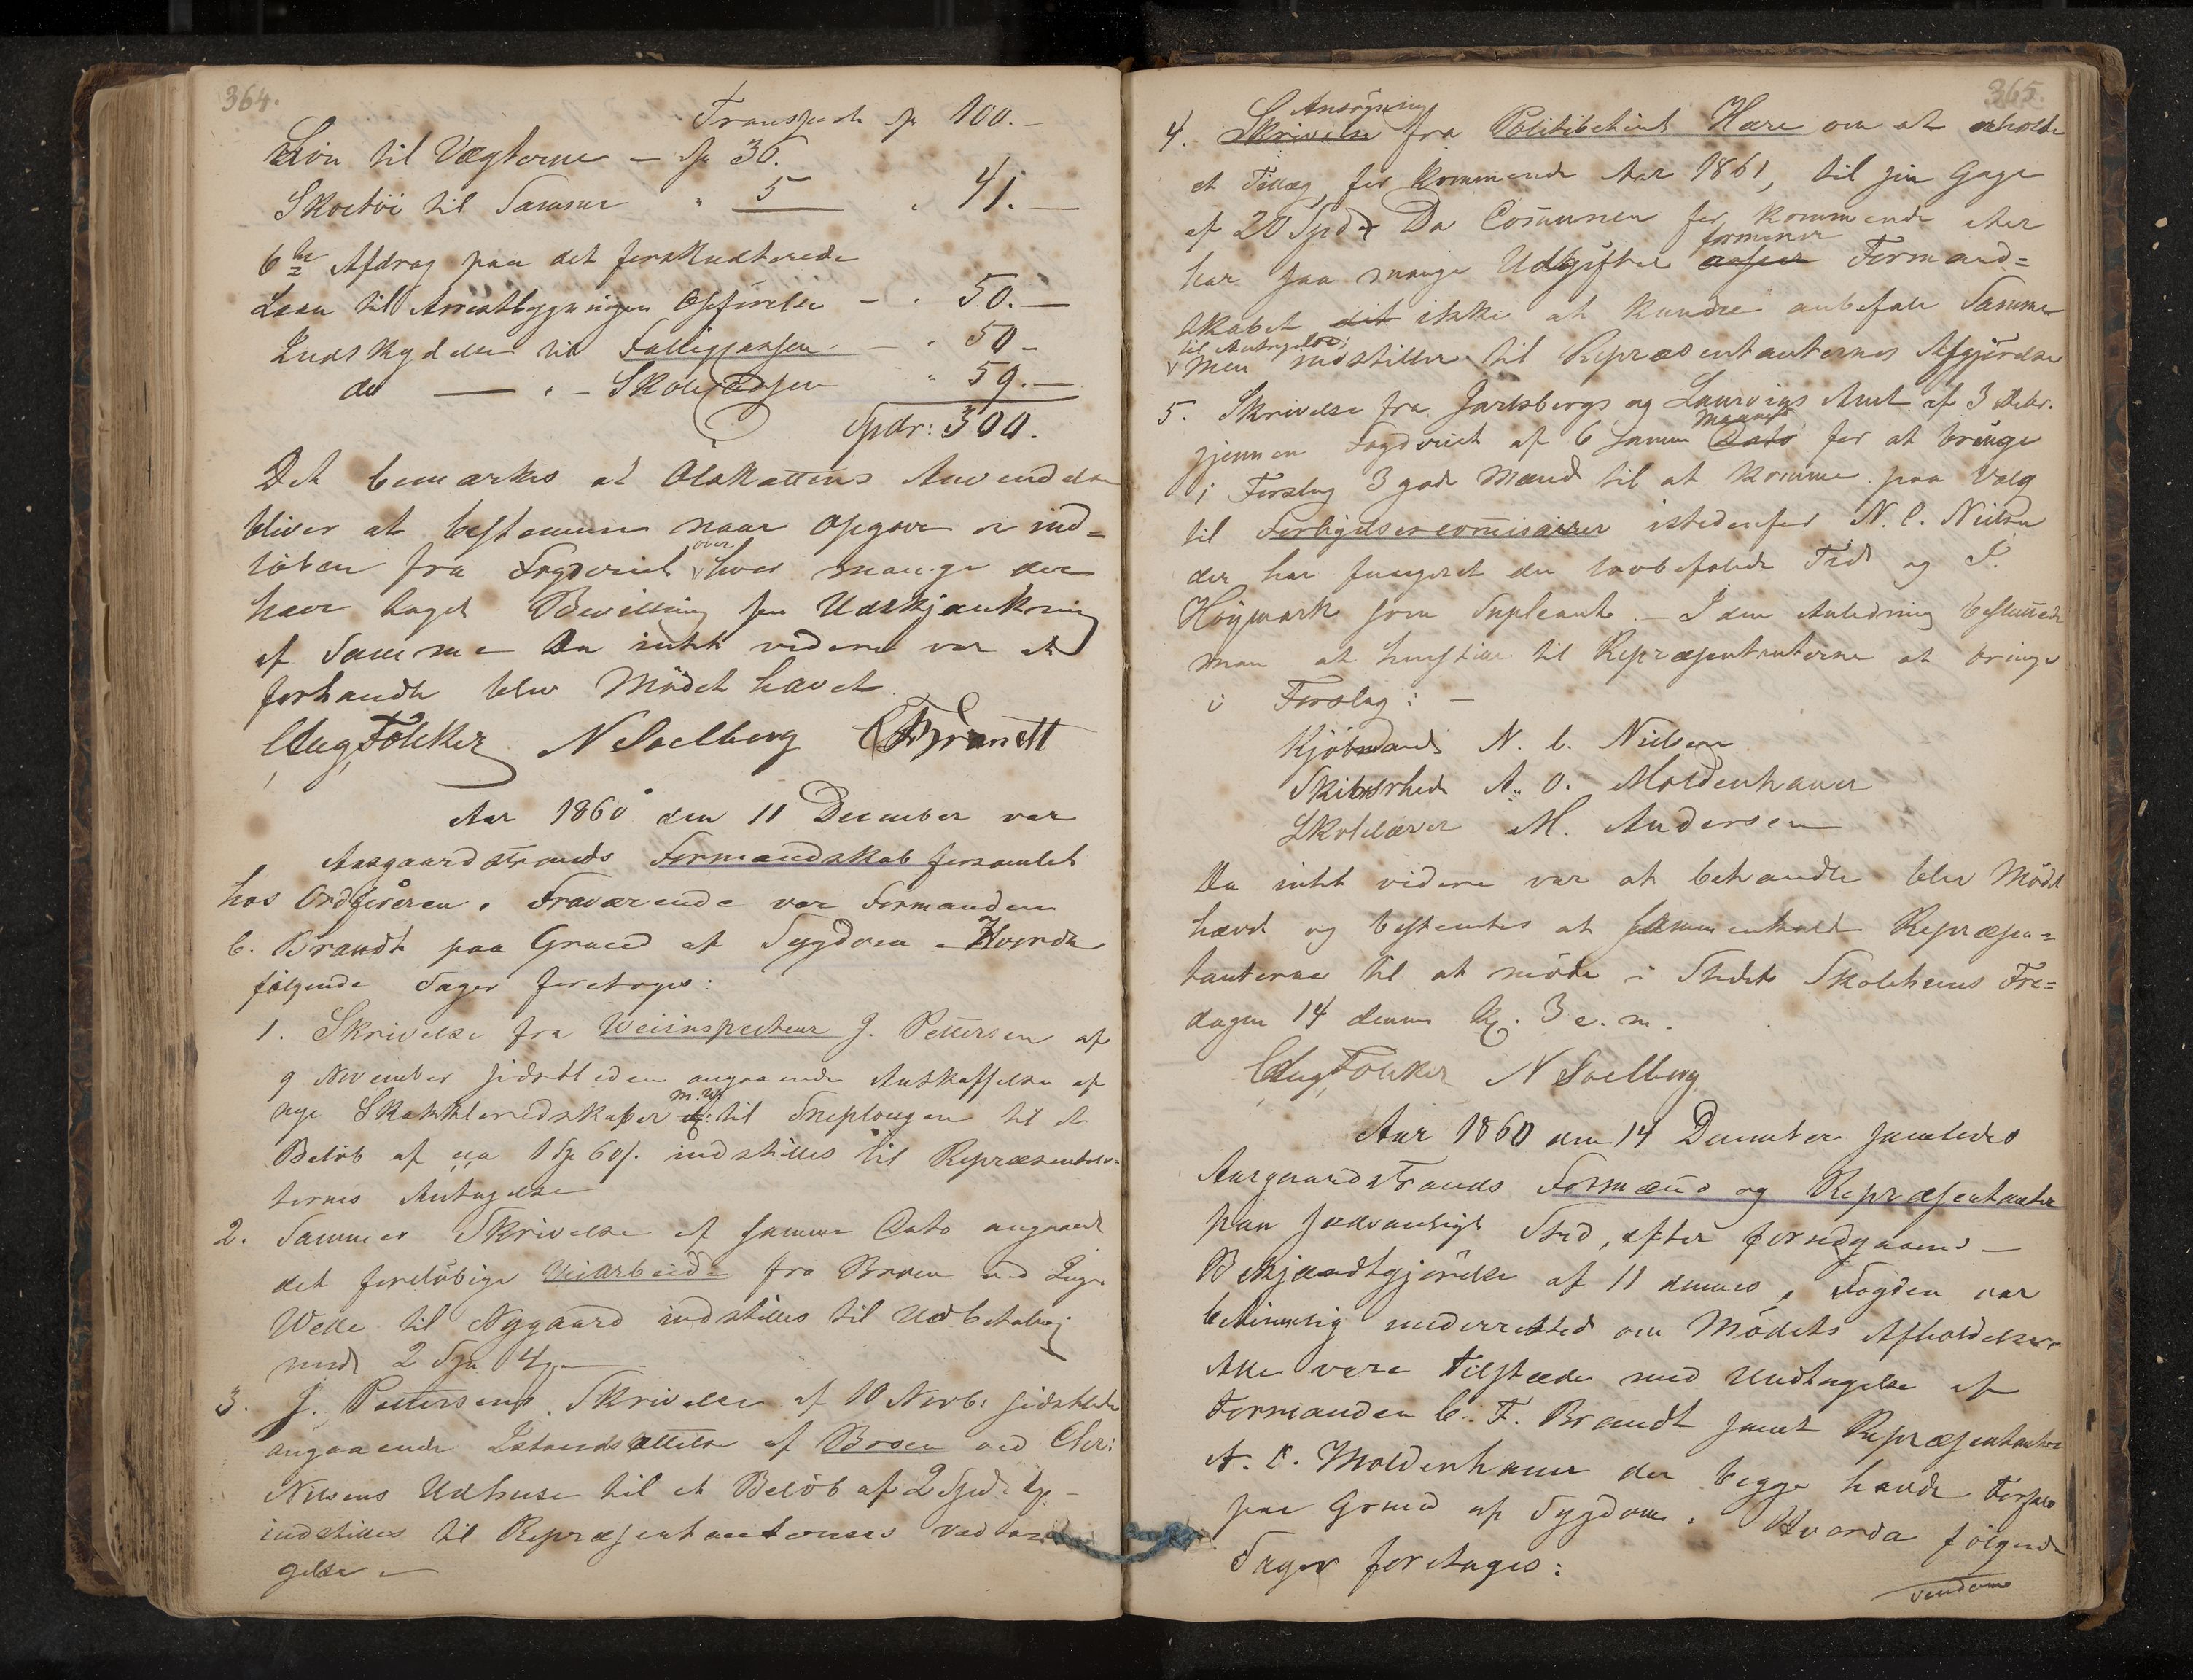 364.
Transport sp 100.-
Løn til Vægterne - Sp 36.
Skoetøi til Samme " 5 " 41.-
6te Afdrag paa det forskudterede
Laan til Arrestbygningen Opførelse - " 50.-
Indskydelse til Fattigkassen - " 50-
do — " - Skolekassen " 59.-
Spdr: 300.
Det bemærkes at Ølskattens Anvendelse
bliver at bestemme naar Opgave er ind=
løben fra Fogderiet over hvor mange der
have taget Bevilling paa Udskjænkning
af Samme Da intet videre var at
forhandle blev Mødet hævet.
Aug Følcker N Soelberg CFBrandt
Aar 1860 den 11 December var
Aasgaardstrands Formandskab forsamlet
hos Ordføreren. Fraværende var Formanden
C. Brandt paa Grund af Sygdom - Hvorda
følgende Sager foretoges:
1. Skrivelse fra Weiinspecteur J. Pettersen af
9 November sidstleden angaaende Anskaffelse af
nye Skakkleredskaber m.v. til Sneplougen til et
Beløb af cca 1 Sp 60 s. indstilles til Repræsentan-
ternes Antagelse
2. Sammes Skrivelse af samme Dato angaaende
det foreløbige Veiarbeide fra Broen ved Inge
Welle til Nygaard indstilles til Udbetaling
med 2 Spd 4
3. J. Pettersens Skrivelse af 10 Novb: sidstleden
angaaende Istandsættelse af Broen ved Chr:
Nilsens Udhuse til et Beløb af 2 Spd.
indstilles til Repræsentanternes Vedta=
gelse -
365.
4. Skrivelse Ansøgning fra Politibetient Hære om at erholde
et Tillæg, for kommende Aar 1861, til sin Gage
af 20 Spd. Da Comunen for kommende Aar
har saa mange Udgifter formener Formand=
skabet det ikke at kunne anbefale Samme
til Antagelse; men indstiller til Repræsentanternes Afgjørelse
5. Skrivelse fra Jarlsbergs og Laurvigs Amt af 3 Debr.
gjennem Fogderiet af 6 samme Dato Maaned for at bringe
i Forslag 3 gode Mænd til at komme paa Valg
til Forligelsescomisairer istedenfor N. C. Nielsen
der har fungeret den lovbefalede Tid og I.
Høymark som Supleant. - I den Anledning bestemte
man at henstille til Repræsentanterne at bringe
i Forslag: -
Kjøbmand N. C. Nielsen
Skibsrheder A. O. Moldenhauer
Skolelærer M. Andersen
Da intet videre var at behandle blev Mødet
hævet og bestemtes at sammenkalde Repræsen=
tanterne til at møde i Stedets Skolehuus Fre=
dagen 14 dennes Kl. 3 e.m.
Aug Følcker N Soelberg
Aar 1860 den 14 December samledes
Aasgaardstrands Formænd og Repræsentanter
paa sædvanligt Sted, efter forudgaaende -
Bekjendtgjørelse af 11 dennes, Fogden var
betimelig underrettet om Mødets Afholdelse.
Alle vare tilstæde med Undtagelse af
Formanden C. F. Brandt samt Repræsentanten
A. O. Moldenhauer der begge havde Forfald
paa Grund af Sygdom. Hvorda følgende
Sager foretoges:
vendom